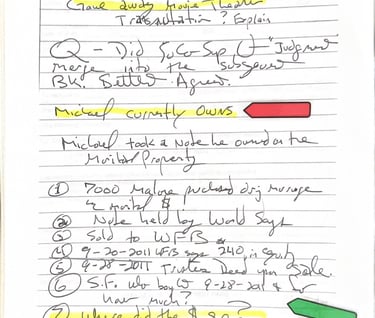 Gave away Movie Theatre
? Explain
Q - Did SoCo-Sep Judgment
merge into the subsequent
BK. Settle. Agree.
Michael currently owns
Michael took a Note he owned on the
Marital Property
① 7000 Malone purchased during marriage
w marital $
② Note held by World Savgs
③ Sold to WFB
④ 9-20-2011 WFB says 240, in equity
⑤ 9-28-2011 Trustee Deed upon Sale.
⑥ S.F. who buys 9-28-2011 & for
how much?
⑦ Where did the $ go?